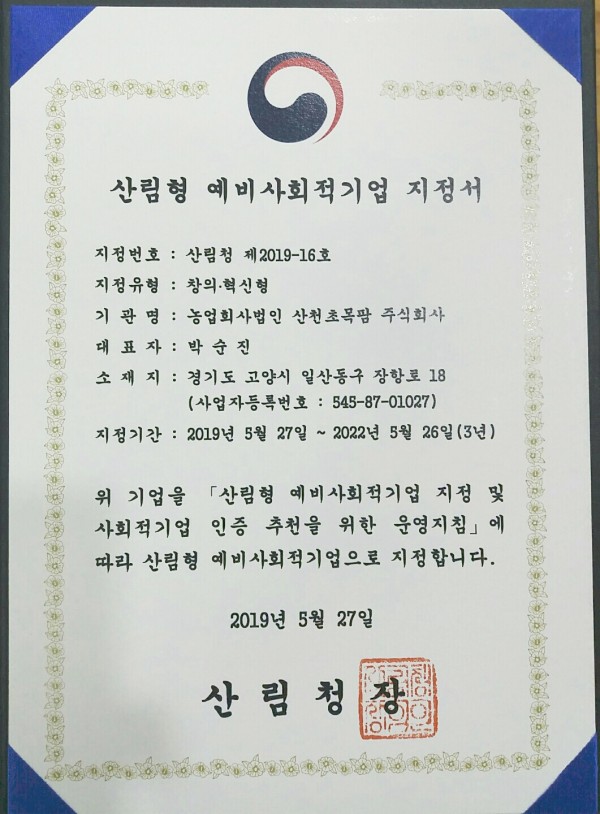 산림형 예비사회적기업 지정서
지정번호 : 산림청 제2019-16호
지정유형 : 창의·혁신형
기 관 명 : 농업회사법인 산천초목팜 주식회사
대 표 자 : 박 순 진
소 재 지 : 경기도 고양시 일산동구 장항로 18
(사업자등록번호 : 545-87-01027)
지정기간 : 2019년 5월 27일 ~ 2022년 5월 26일(3년)
위 기업을 「산림형 예비사회적기업 지정 및
사회적기업 인증 추천을 위한 운영지침」에
따라 산림형 예비사회적기업으로 지정합니다.
2019년 5월 27일
산 림 청 장